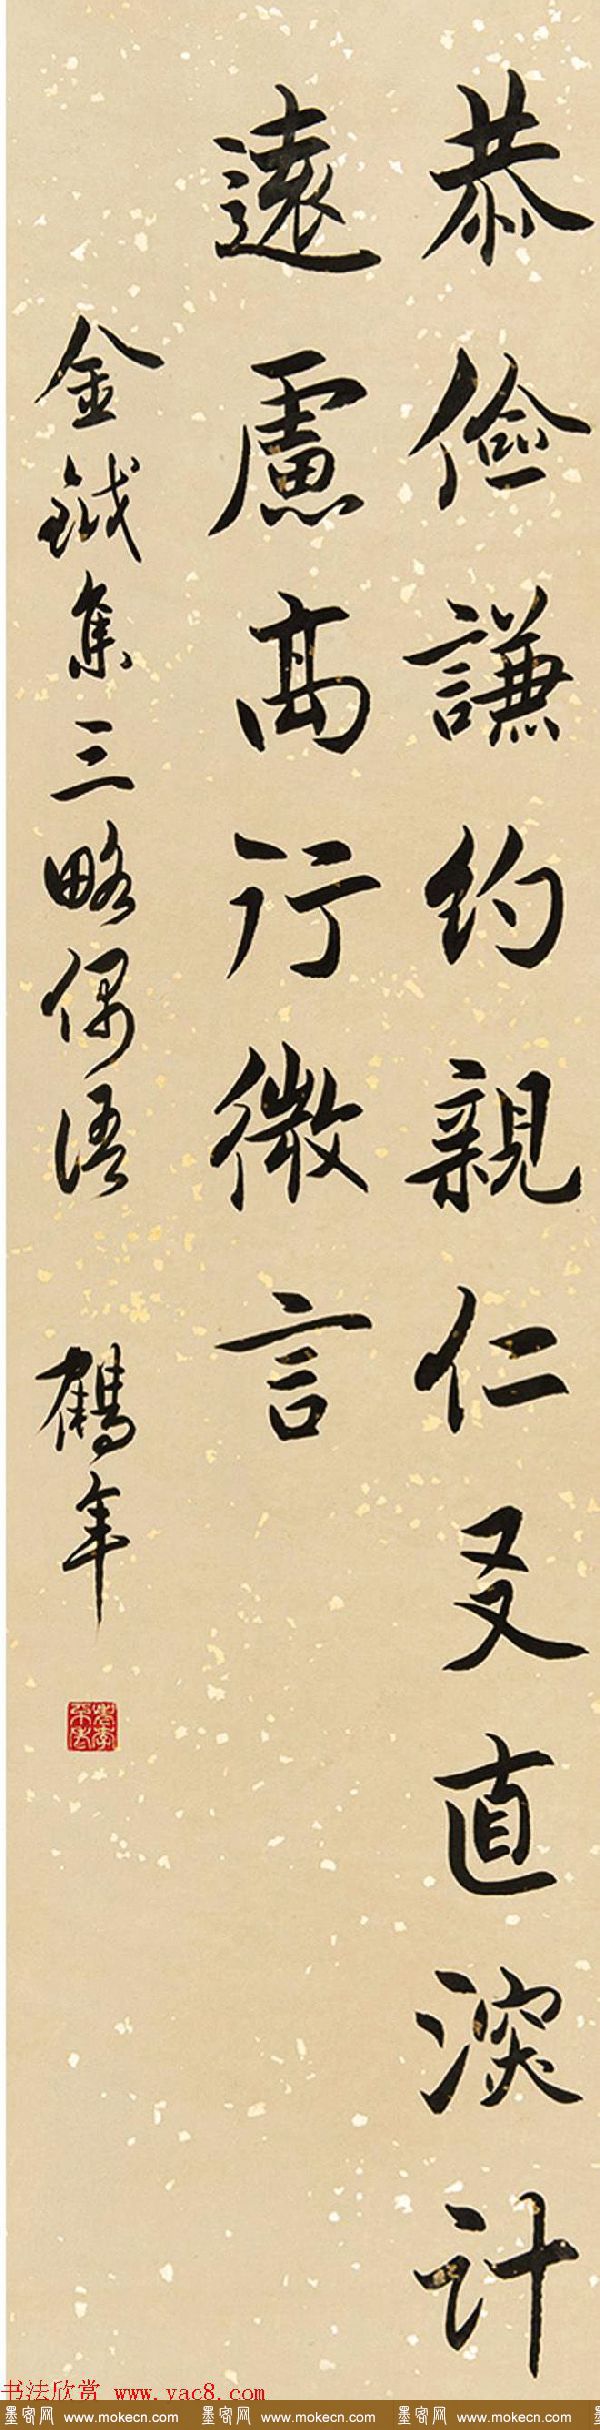 恭儉謙約親仁友直深計
遠慮高行微言
金鉞集三略偶語 鶴年
书法欣赏 www.yac8.com
墨客网 www.mokecn.com 墨客网 www.mokecn.com 墨客网 www.mokecn.com